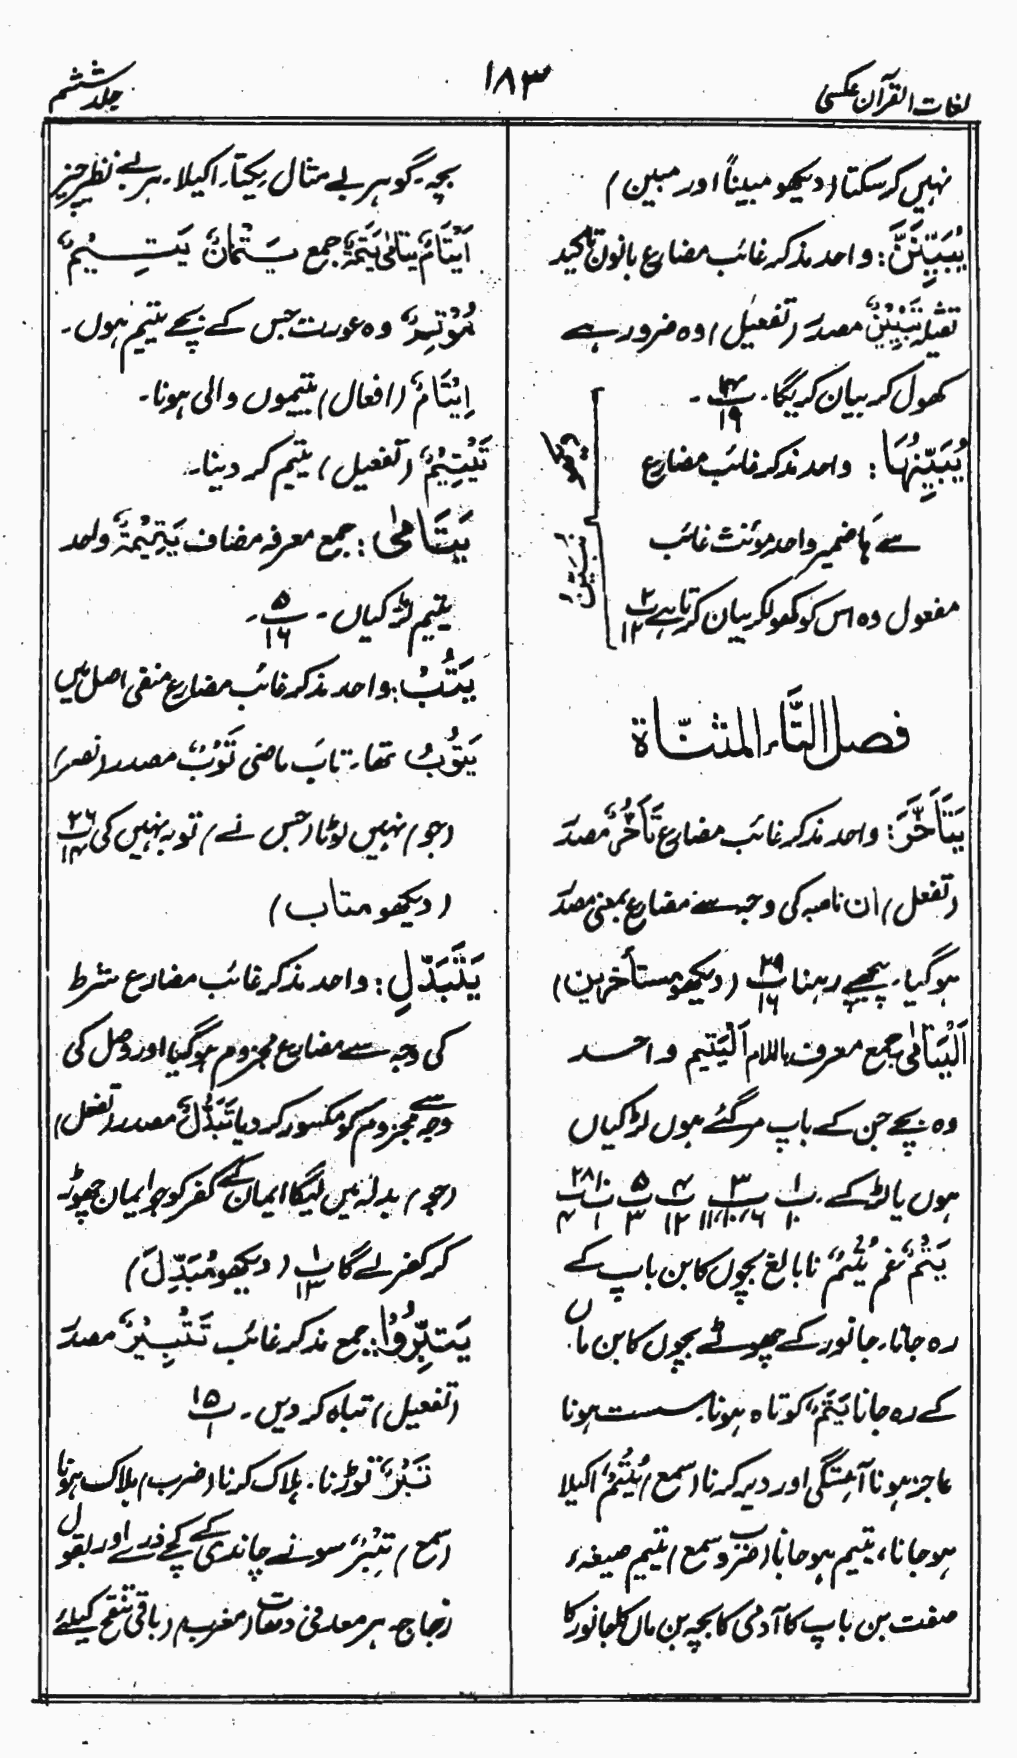 لغات القرآن عکسی
۱۸۳
جلد ششم
نہیں کر سکتا (دیکھو مبیناً اور مبین)
یُبَیِّنَنَّ: واحد مذکر غائب مضارع بانون تاکید
ثقیلہ تَبْیِیْنٌ مصدر (تفعیل) وہ ضرور ہے
کھول کر بیان کریگا۔ پ ۱۹
یُبَیِّنُهَا: واحد مذکر غائب مضارع
سے ہَا ضمیر واحد مؤنث غائب
مفعول وہ اس کو کھولکر بیان کرتا ہے پ ۲ ۱۲
دیکھو
نُبَیِّنُ
فصل التَّاء المثنّاة
یَتَأَخَّرَ: واحد مذکر غائب مضارع تَأَخُّرٌ مصدر
(تفعل) ان ناصبہ کی وجہ سے مضارع بمعنی مصدر
ہو گیا۔ پیچھے رہنا پ ۲۹ ۱۶ (دیکھو مستأخرین)
اَلْیَتَامٰی جمع معرف باللام اَلْیَتِیم واحد
وہ بچے جن کے باپ مر گئے ہوں لڑکیاں
ہوں یا لڑکے۔ پ ۱ ۱۰ پ ۳ ۶،۱۰،۱۱ پ ۴ ۱۲ پ ۵ ۳ پ ۱۰ ۱ پ ۲۸ ۴
یَتْمٌ نعم یُتْمٌ نابالغ بچوں کا بن باپ کے
رہ جانا۔ جانور کے چھوٹے بچوں کا بن ماں
کے رہ جانا یَتَمٌ کوتاہ ہونا۔ سست ہونا
عاجز ہونا آہستگی اور دیر کرنا (سمع) یُتْمٌ اکیلا
ہو جانا، یتیم ہو جانا (ضرب و سمع) یتیم صیغہء
صفت بن باپ کا آدمی کا بچہ بن ماں کا جانور کا
بچہ۔ گوہر بے مثال یکتا۔ اکیلا۔ ہر بے نظیر چیز
اَیْتَامٌ یَتَامٰی یَتَمَةٌ جمع یَتْمَانٌ یَتِیْمٌ
مُوْتِمٌ وہ عورت جس کے بچے یتیم ہوں۔
اِیْتَامٌ (افعال) یتیموں والی ہونا۔
تَیْتِیْمٌ (تفعیل) یتیم کر دینا۔
یَتَامٰی: جمع معرفہ مضاف یَتِیْمَةٌ واحد
یتیم لڑکیاں۔ پ ۵ ۱۶۔
یَتُبْ: واحد مذکر غائب مضارع منفی اصل میں
یَتُوْبُ تھا۔ تابَ ماضی تَوْبٌ مصدر (نصر)
(جو) نہیں لوٹا (جس نے) توبہ نہیں کی پ ۲۶ ۱۴
(دیکھو متاب)
یَتَبَدَّلِ: واحد مذکر غائب مضارع شرط
کی وجہ سے مضارع مجزوم ہو گیا اور وصل کی
وجہ سے مجزوم کو مکسور کر دیا تَبَدُّلٌ مصدر (تفعل)
(جو) بدلہ میں لیگا ایمان کے کفر کو جو ایمان چھوڑ
کر کفر لے گا پ ۱ ۱۳ (دیکھو مُبَدِّلَ)
یَتبِّرُوْا: جمع مذکر غائب تَتْبِیْرٌ مصدر
(تفعیل) تباہ کر دیں۔ پ ۱۵ ۱
تَبْرٌ توڑنا۔ ہلاک کرنا (ضرب) ہلاک ہونا
(سمع) تِبْرٌ سونے چاندی کے کچے ذرے اور بقول
زجاج۔ ہر معدنی دھات (مغرب) (باقی تنقیح کیلئے